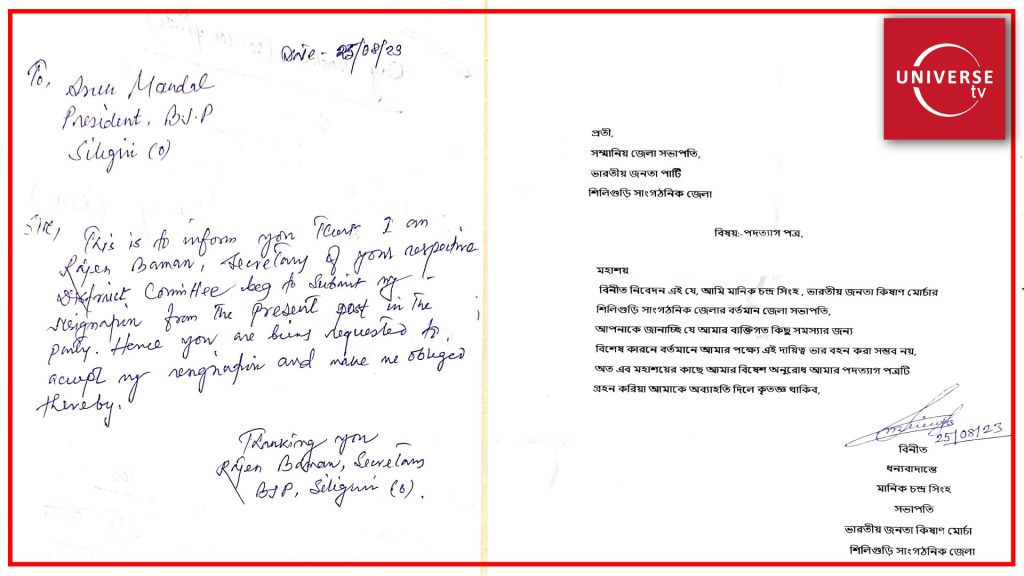 UNIVERSE
tv
Date - 25/08/23
To,
Arun Mandal
President, B.J.P
Siliguri (O)
Sir,
This is to inform you that I am
Rajen Baman, Secretary of your respective
District Committee beg to submit my
resignation from the present post in the
party. Hence you are being requested to
accept my resignation and make me obliged
thereby.
Thanking you
Rajen Baman, Secretary
BJP, Siliguri (O).
প্রতী,
সম্মানিয় জেলা সভাপতি,
ভারতীয় জনতা পার্টি
শিলিগুড়ি সাংগঠনিক জেলা
বিষয়:-পদত্যাগ পত্র,
মহাশয়
বিনীত নিবেদন এই যে, আমি মানিক চন্দ্র সিংহ , ভারতীয় জনতা কিষাণ মোর্চার
শিলিগুড়ি সাংগঠনিক জেলার বর্তমান জেলা সভাপতি,
আপনাকে জানাচ্ছি যে আমার ব্যক্তিগত কিছু সমস্যার জন্য
বিশেষ কারনে বর্তমানে আমার পক্ষে এই দায়িত্ব ভার বহন করা সম্ভব নয়,
অত এব মহাশয়ের কাছে আমার বিষেশ অনুরোধ আমার পদত্যাগ পত্রটি
গ্রহন করিয়া আমাকে অব্যাহতি দিলে কৃতজ্ঞ থাকিব,
25/08/23
বিনীত
ধন্যবাদান্তে
মানিক চন্দ্র সিংহ
সভাপতি
ভারতীয় জনতা কিষাণ মোর্চা
শিলিগুড়ি সাংগঠনিক জেলা